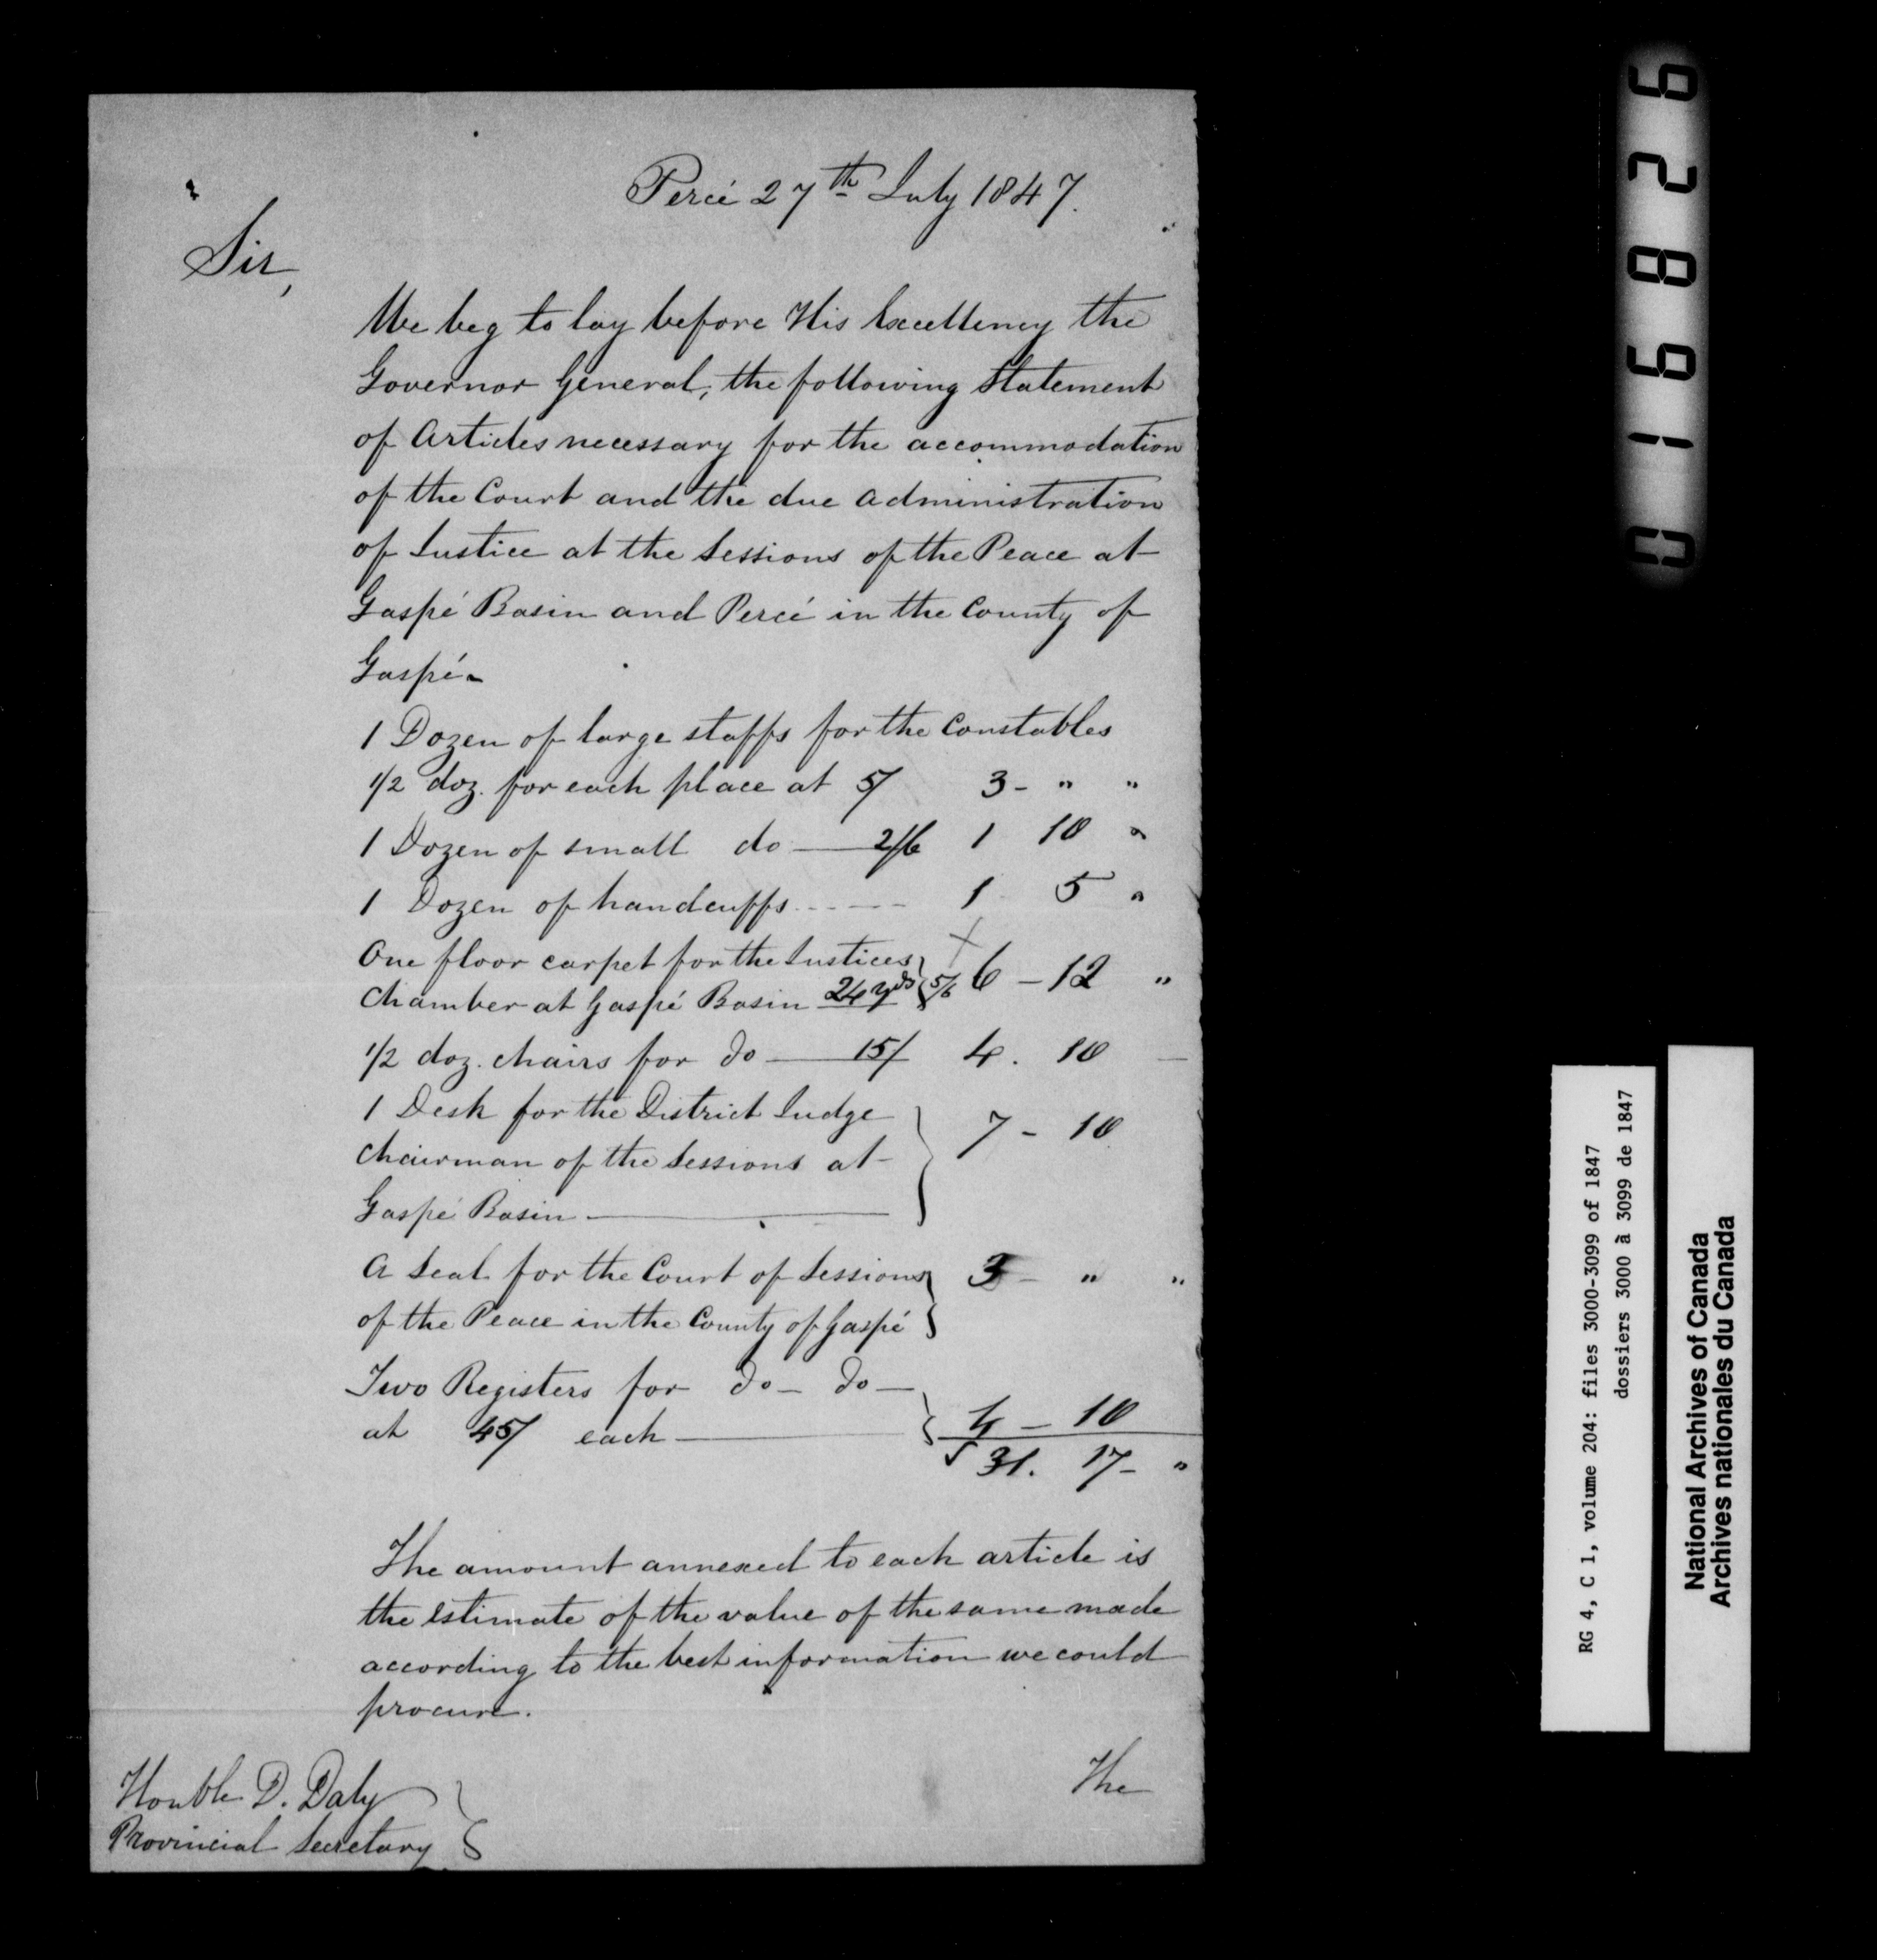 Percé 27th July 1847.
Sir,
We beg to lay before His Excellency the
Governor General, the following Statement
of Articles necessary for the accommodation
of the Court and the due administration
of Justice at the Sessions of the Peace at
Gaspé Basin and Percé in the County of
Gaspé-
1 Dozen of large staffs for the Constables
1/2 doz. for each place at 5/ 3 - " "
1 Dozen of small do — 2/6 1 10 "
1 Dozen of handcuffs ----- 1 5 "
One floor carpet for the Justices
Chamber at Gaspé Basin 24 yds } 5/6 6 - 12 "
1/2 doz. chairs for do — 15/ 4. 10 —
1 Desk for the District Judge
Chairman of the Sessions at } 7 - 10
Gaspé Basin —
A Seal for the Court of Sessions } 3 - " "
of the Peace in the County of Gaspé
Two Registers for do - do -
at 45/ each — } 4 - 10
31. 17 - "
The amount annexed to each article is
the estimate of the value of the same made
according to the best information we could
procure.
The
Honble D. Daly
Provincial Secretary
016826
RG 4, C 1, volume 204: files 3000-3099 of 1847
dossiers 3000 à 3099 de 1847
National Archives of Canada
Archives nationales du Canada